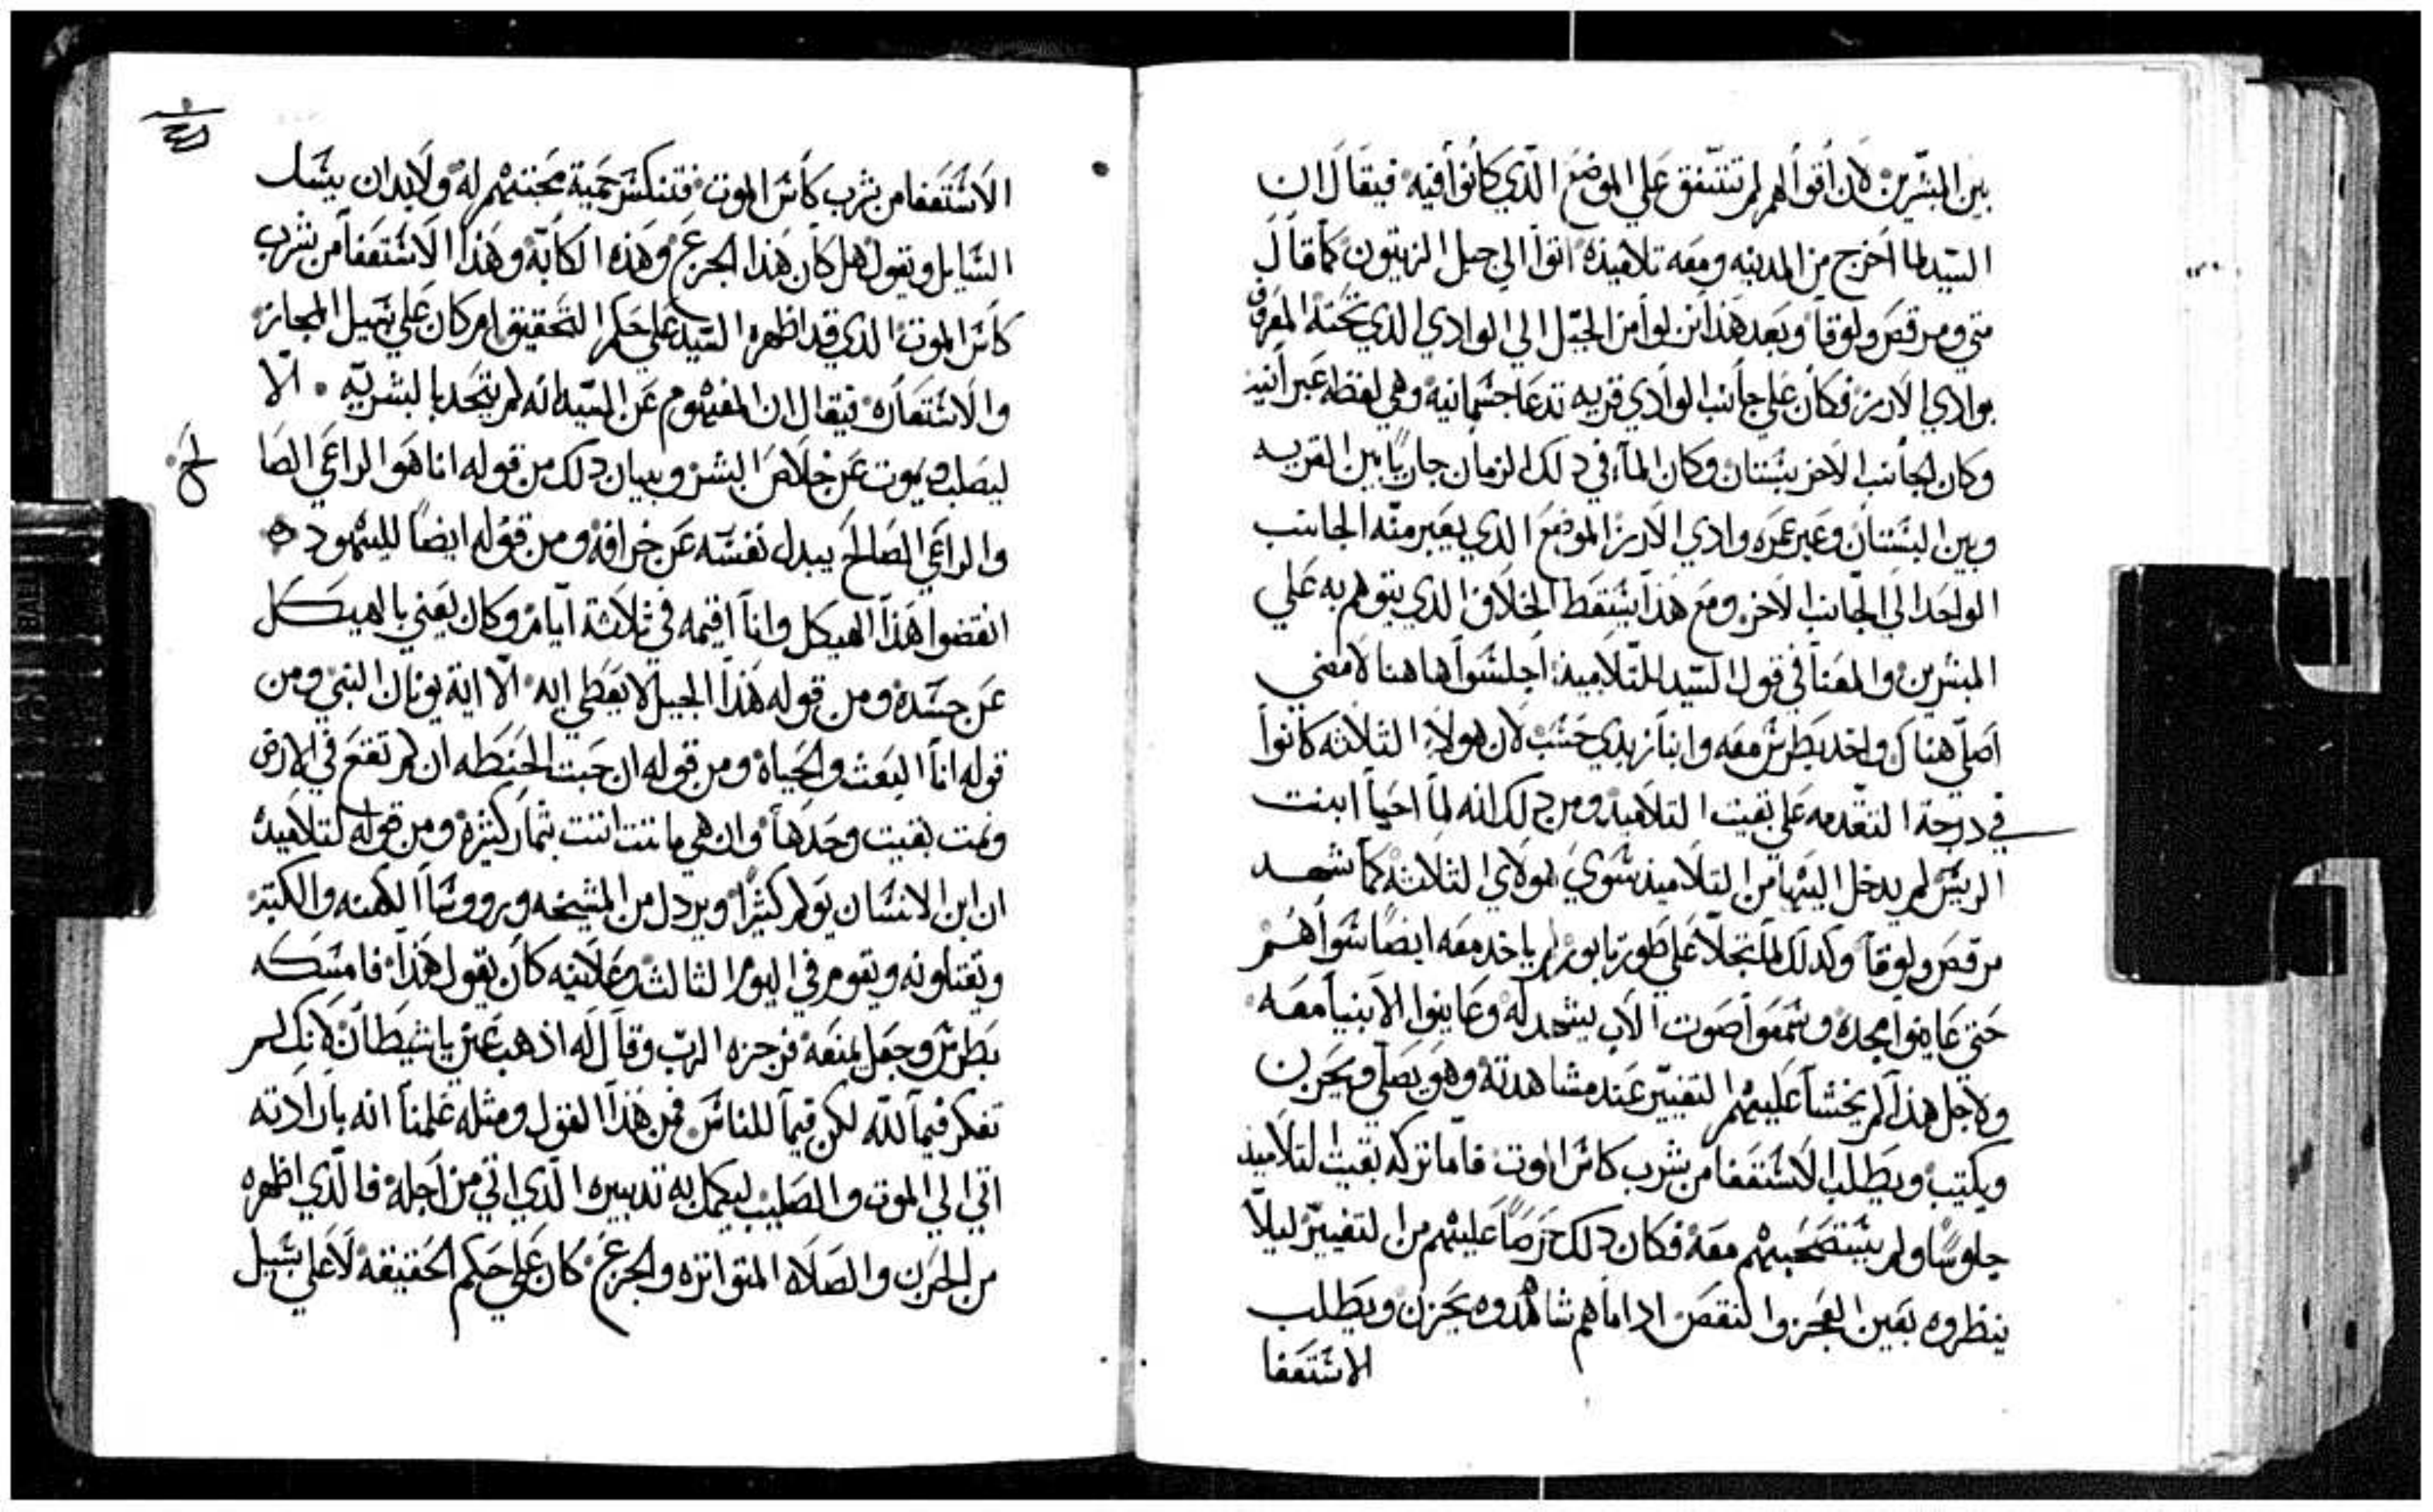 بين المبشرين لان اقوالهم لم تتفق علي الموضع الذي كانوا فيه فيقال ان
السيد لما اخرج من المدينه ومعه تلاميذه اتوا الي جبل الزيتون كما قال
متي ومرقص ولوقا وبعد هذا نزلوا من الجبل الي الوادي الذي تحته المعرف
بوادي الارز فكان علي جانب الوادي قريه تدعا جسمانيه وهي لفظه عبرانيه
وكان الجانب الاخر بستان وكان الماء في دلك الزمان جاريا بين القريه
وبين البستان وعبر عبره وادي الارز الموضع الذي يعبر منه الجانب
الواحد الي الجانب الاخر ومع هذا يسقط الخلاف الذي يتوهم به علي
المبشرين والمعنا في قول السيد للتلاميذ اجلسوا هاهنا لامضي
اصلي هناك واخد بطرس معه وابنا زبدي حسب لان هولاء الثلاثه كانوا
في درجة التقدمه علي بقيت التلاميد ومن دلك انه لما احيا ابنت
الريس لم يدخل اليها من التلاميذ سوي هولاي الثلاثه كما شهد
مرقص ولوقا وكدلك لما تجلا علي طور تابور لم ياخد معه ايضا سواهم
حتي عاينوا مجده وسمعوا صوت الاب يشهد له وعاينوا الانبيا معه
ولاجل هذا لم يخشا عليهم التغيير عند مشاهدته وهو يصلي ويحزن
ويكتيب ويطلب الاستعفا من شرب كاس الموت فاما تركه بقيت التلاميذ
جلوسا ولم يستصحبهم معه فكان دلك حرصا عليهم من التغيير ليلا
ينظروه بعين العجز والنقص ادا ما هم شاهدوه يحزن ويطلب
الاستعفا
الاستعفا من شرب كاس الموت فتنكسر حمية محبتهم له ولابد ان يسال
السايل ويقول هل كان هذا الجزع وهذه الكابه وهذا الاستعفا من شرب
كاس الموت الذي قد اظهره السيد علي حكم التحقيق ام كان علي سبيل المجاز
والاستعاره فيقال ان المفهوم عن السيد انه لم يتحد بالبشريه الا
ليصلب ويموت عن خلاص البشر وبيان دلك من قوله انا هو الراعي الصا
لح
والراعي الصالح يبدل نفسه عن خرافه ومن قوله ايضا لليهود
انقضوا هذا الهيكل وانا اقيمه في ثلاثة ايام وكان يعني بالهيكل
عن جسده ومن قوله هذا الجيل لا يعطي ايه الا اية يونان النبي ومن
قوله انا البعث والحياه ومن قوله ان حبت الحنطه ان لم تقع في الارض
وتمت بقيت وحدها وان هي ماتت اتت بثمار كثيره ومن قوله لتلاميده
ان ابن الانسان يولم كثيرا ويردل من المشيخه ورووسا الكهنه والكتبه
ويقتلونه ويقوم في اليوم الثالث علانيه كان يقول هذا فامسكه
بطرس وجعل يمنعه فزجره الرب وقال له اذهب عني يا شيطان لانك لم
تفكر فيما لله لكن فيما للناس فمن هذا القول ومثله علمنا انه بارادته
اتي الي الموت والصليب ليكمل به تدبيره الذي اتي من اجله فالذي اظهره
من الحزن والصلاه المتواتره والجزع كان علي حكم الحقيقه لا علي سبيل